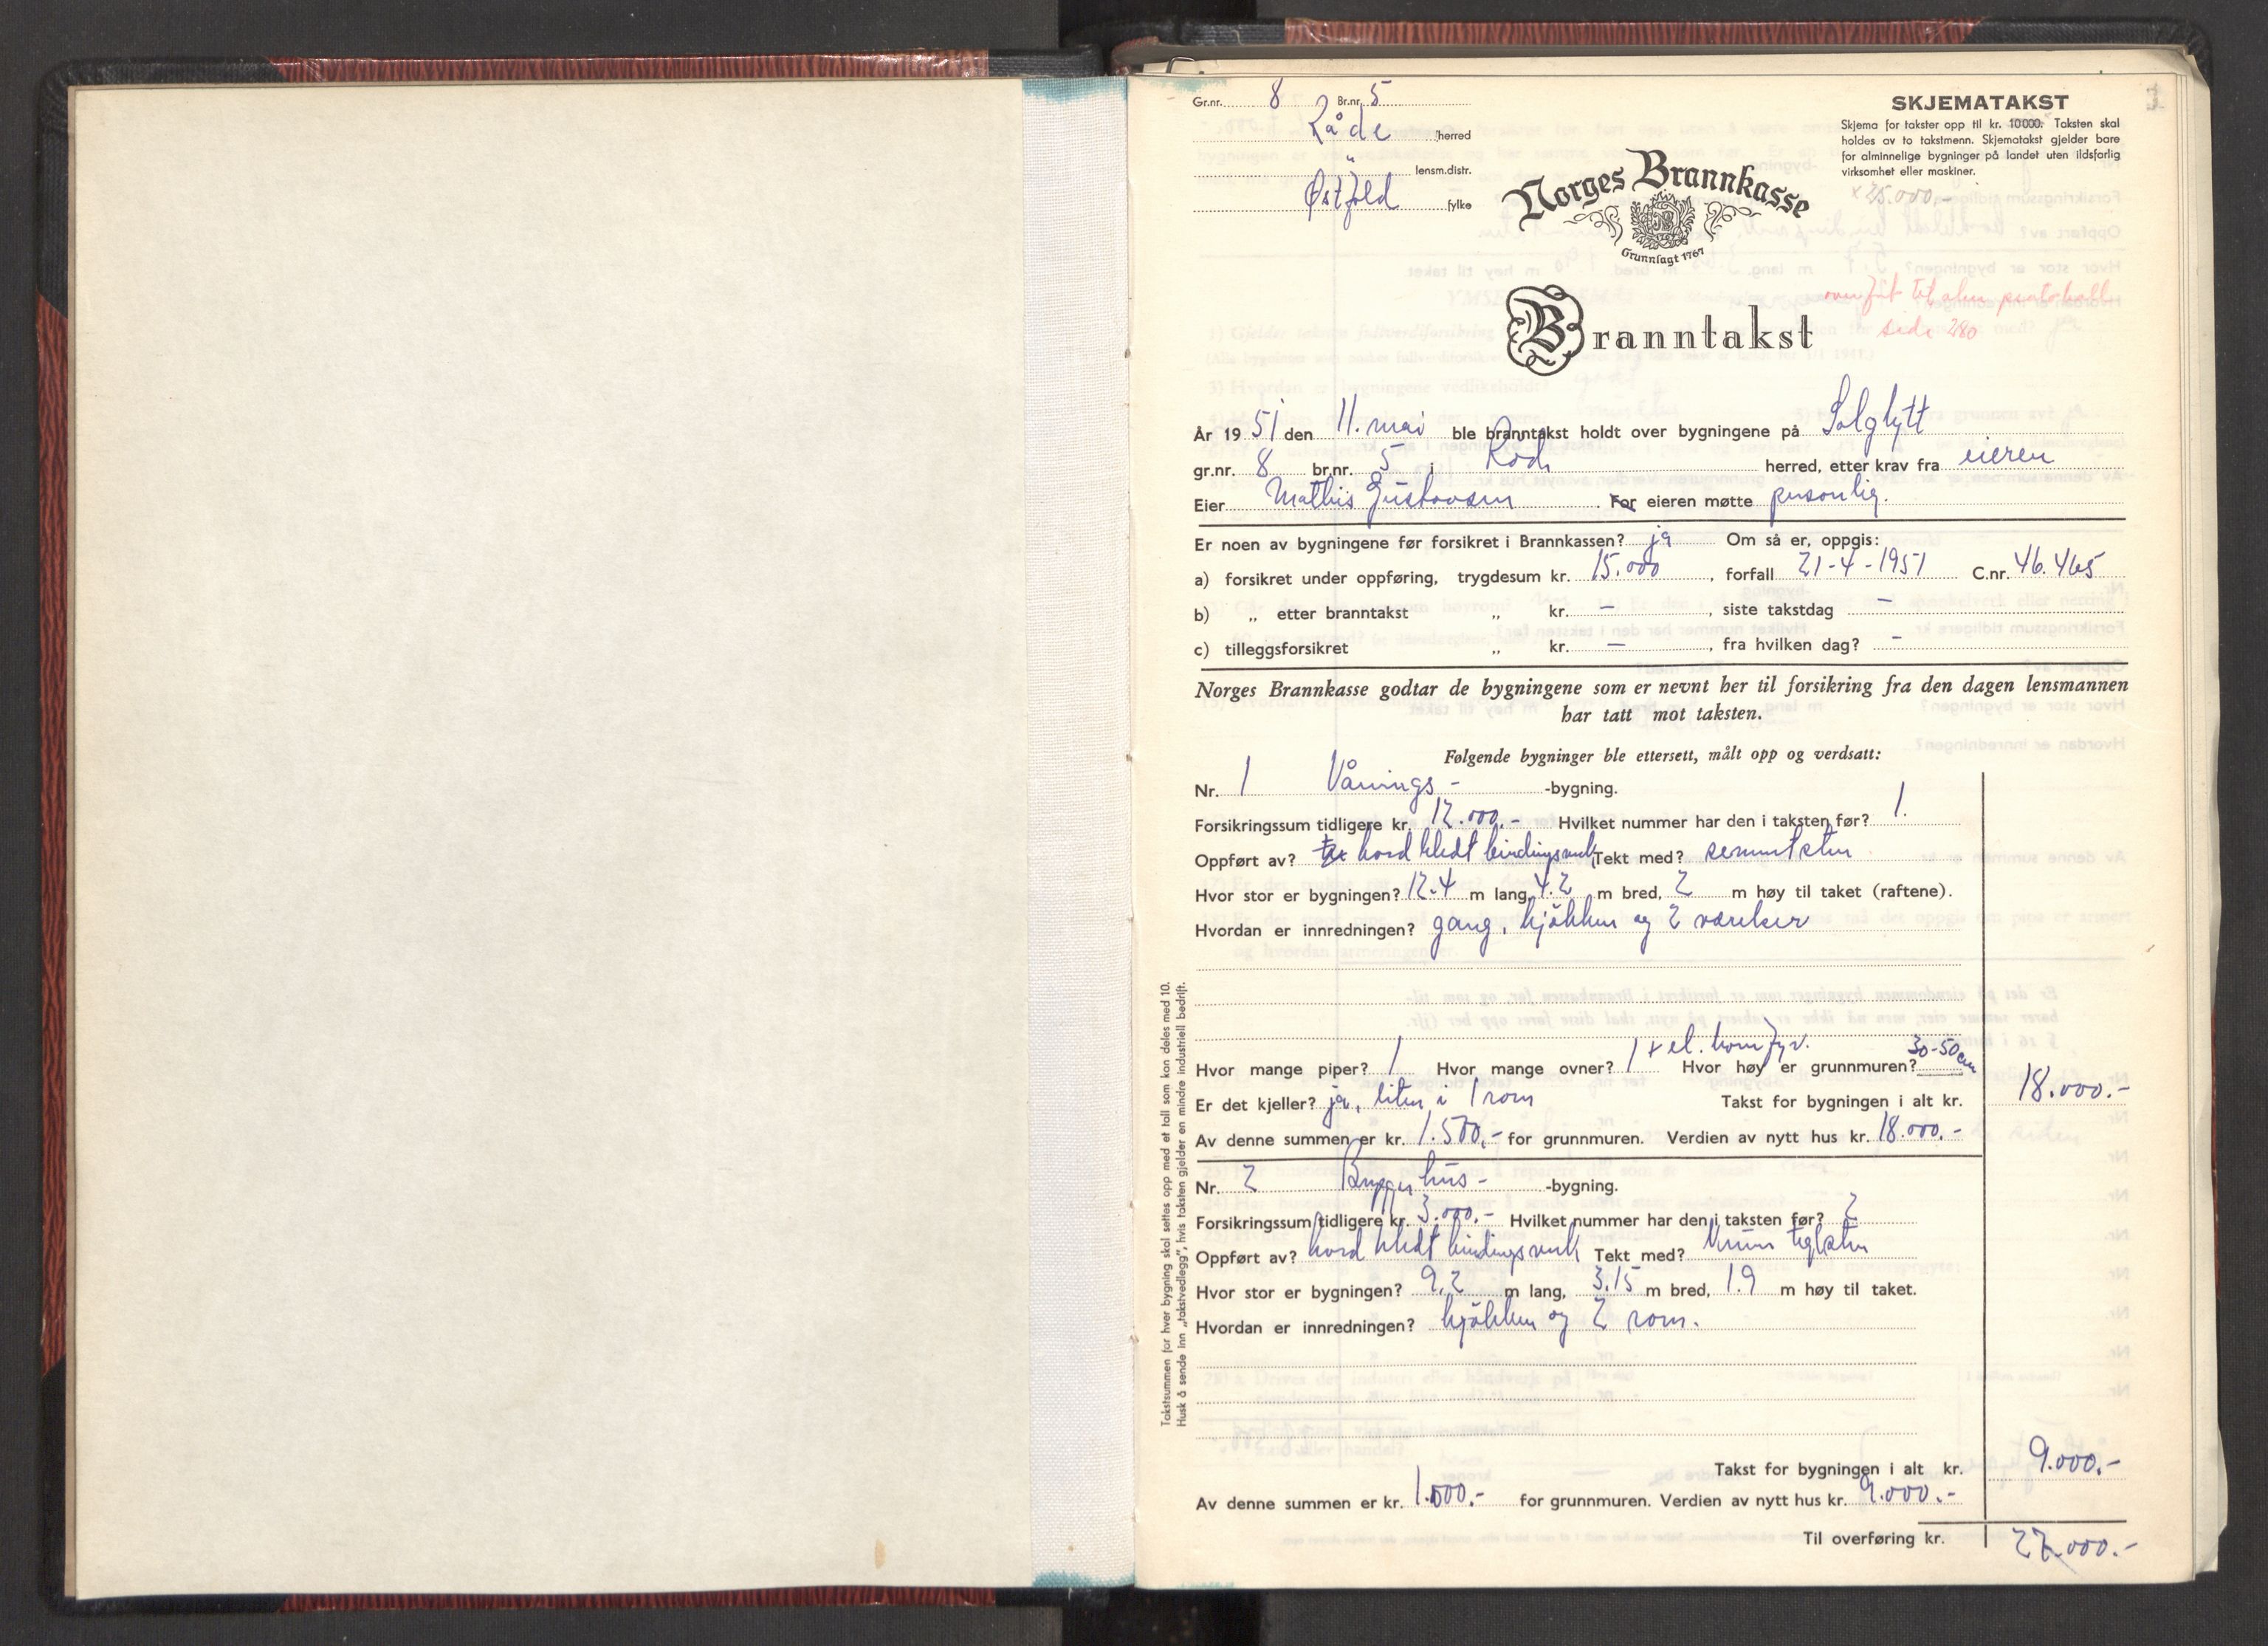 Gr.nr. 8 Br.nr. 5
Råde herred
" lensm.distr.
Østfold fylke
SKJEMATAKST
Skjema for takster opp til kr. 10000. Taksten skal
holdes av to takstmenn. Skjematakst gjelder bare
for alminnelige bygninger på landet uten ildsfarlig
virksomhet eller maskiner.
x 25.000,-
Norges Brannkasse
Grunnlagt 1767
Branntakst
side 280
År 1951 den 11. mai ble branntakst holdt over bygningene på Solglytt
gr.nr. 8 br.nr. 5 i Råde herred, etter krav fra eieren
Eier Mathis Gustavsen. For eieren møtte personlig.
Er noen av bygningene før forsikret i Brannkassen? ja Om så er, oppgis:
a) forsikret under oppføring, trygdesum kr. 15.000, forfall 21-4-1951 C.nr. 46.465
b) „ etter branntakst „ kr. —, siste takstdag —
c) tilleggsforsikret „ kr. —, fra hvilken dag? —
Norges Brannkasse godtar de bygningene som er nevnt her til forsikring fra den dagen lensmannen
har tatt mot taksten.
Følgende bygninger ble ettersett, målt opp og verdsatt:
Nr. 1 Vånings- -bygning.
Forsikringssum tidligere kr. 12.000.- Hvilket nummer har den i taksten før? 1.
Oppført av? bord kledt bindingsverk Tekt med? sementsten
Hvor stor er bygningen? 12.4 m lang 4.2 m bred, 2 m høy til taket (raftene).
Hvordan er innredningen? gang, kjökken og 2 værelser
Hvor mange piper? 1 Hvor mange ovner? 1 + el. komfyr. Hvor høy er grunnmuren? 30-50 cm
Er det kjeller? ja, liten i 1 rom Takst for bygningen i alt kr. 18.000.-
Av denne summen er kr. 1.500,- for grunnmuren. Verdien av nytt hus kr. 18.000.-
Nr. 2 Bryggerhus- -bygning.
Forsikringssum tidligere kr. 3.000.- Hvilket nummer har den i taksten før? 2
Oppført av? bord kledt bindingsverk Tekt med? teglsten
Hvor stor er bygningen? 9.2 m lang, 3.15 m bred, 1.9 m høy til taket.
Hvordan er innredningen? kjökken og 2 rom.
Takst for bygningen i alt kr. 9.000.-
Av denne summen er kr. 1.000.- for grunnmuren. Verdien av nytt hus kr. 9.000.-
Til overføring kr. 27.000.-
Takstsummen for hver bygning skal settes opp med et tall som kan deles med 10.
Husk å sende inn „takstvedlegg", hvis taksten gjelder en mindre industriell bedrift.